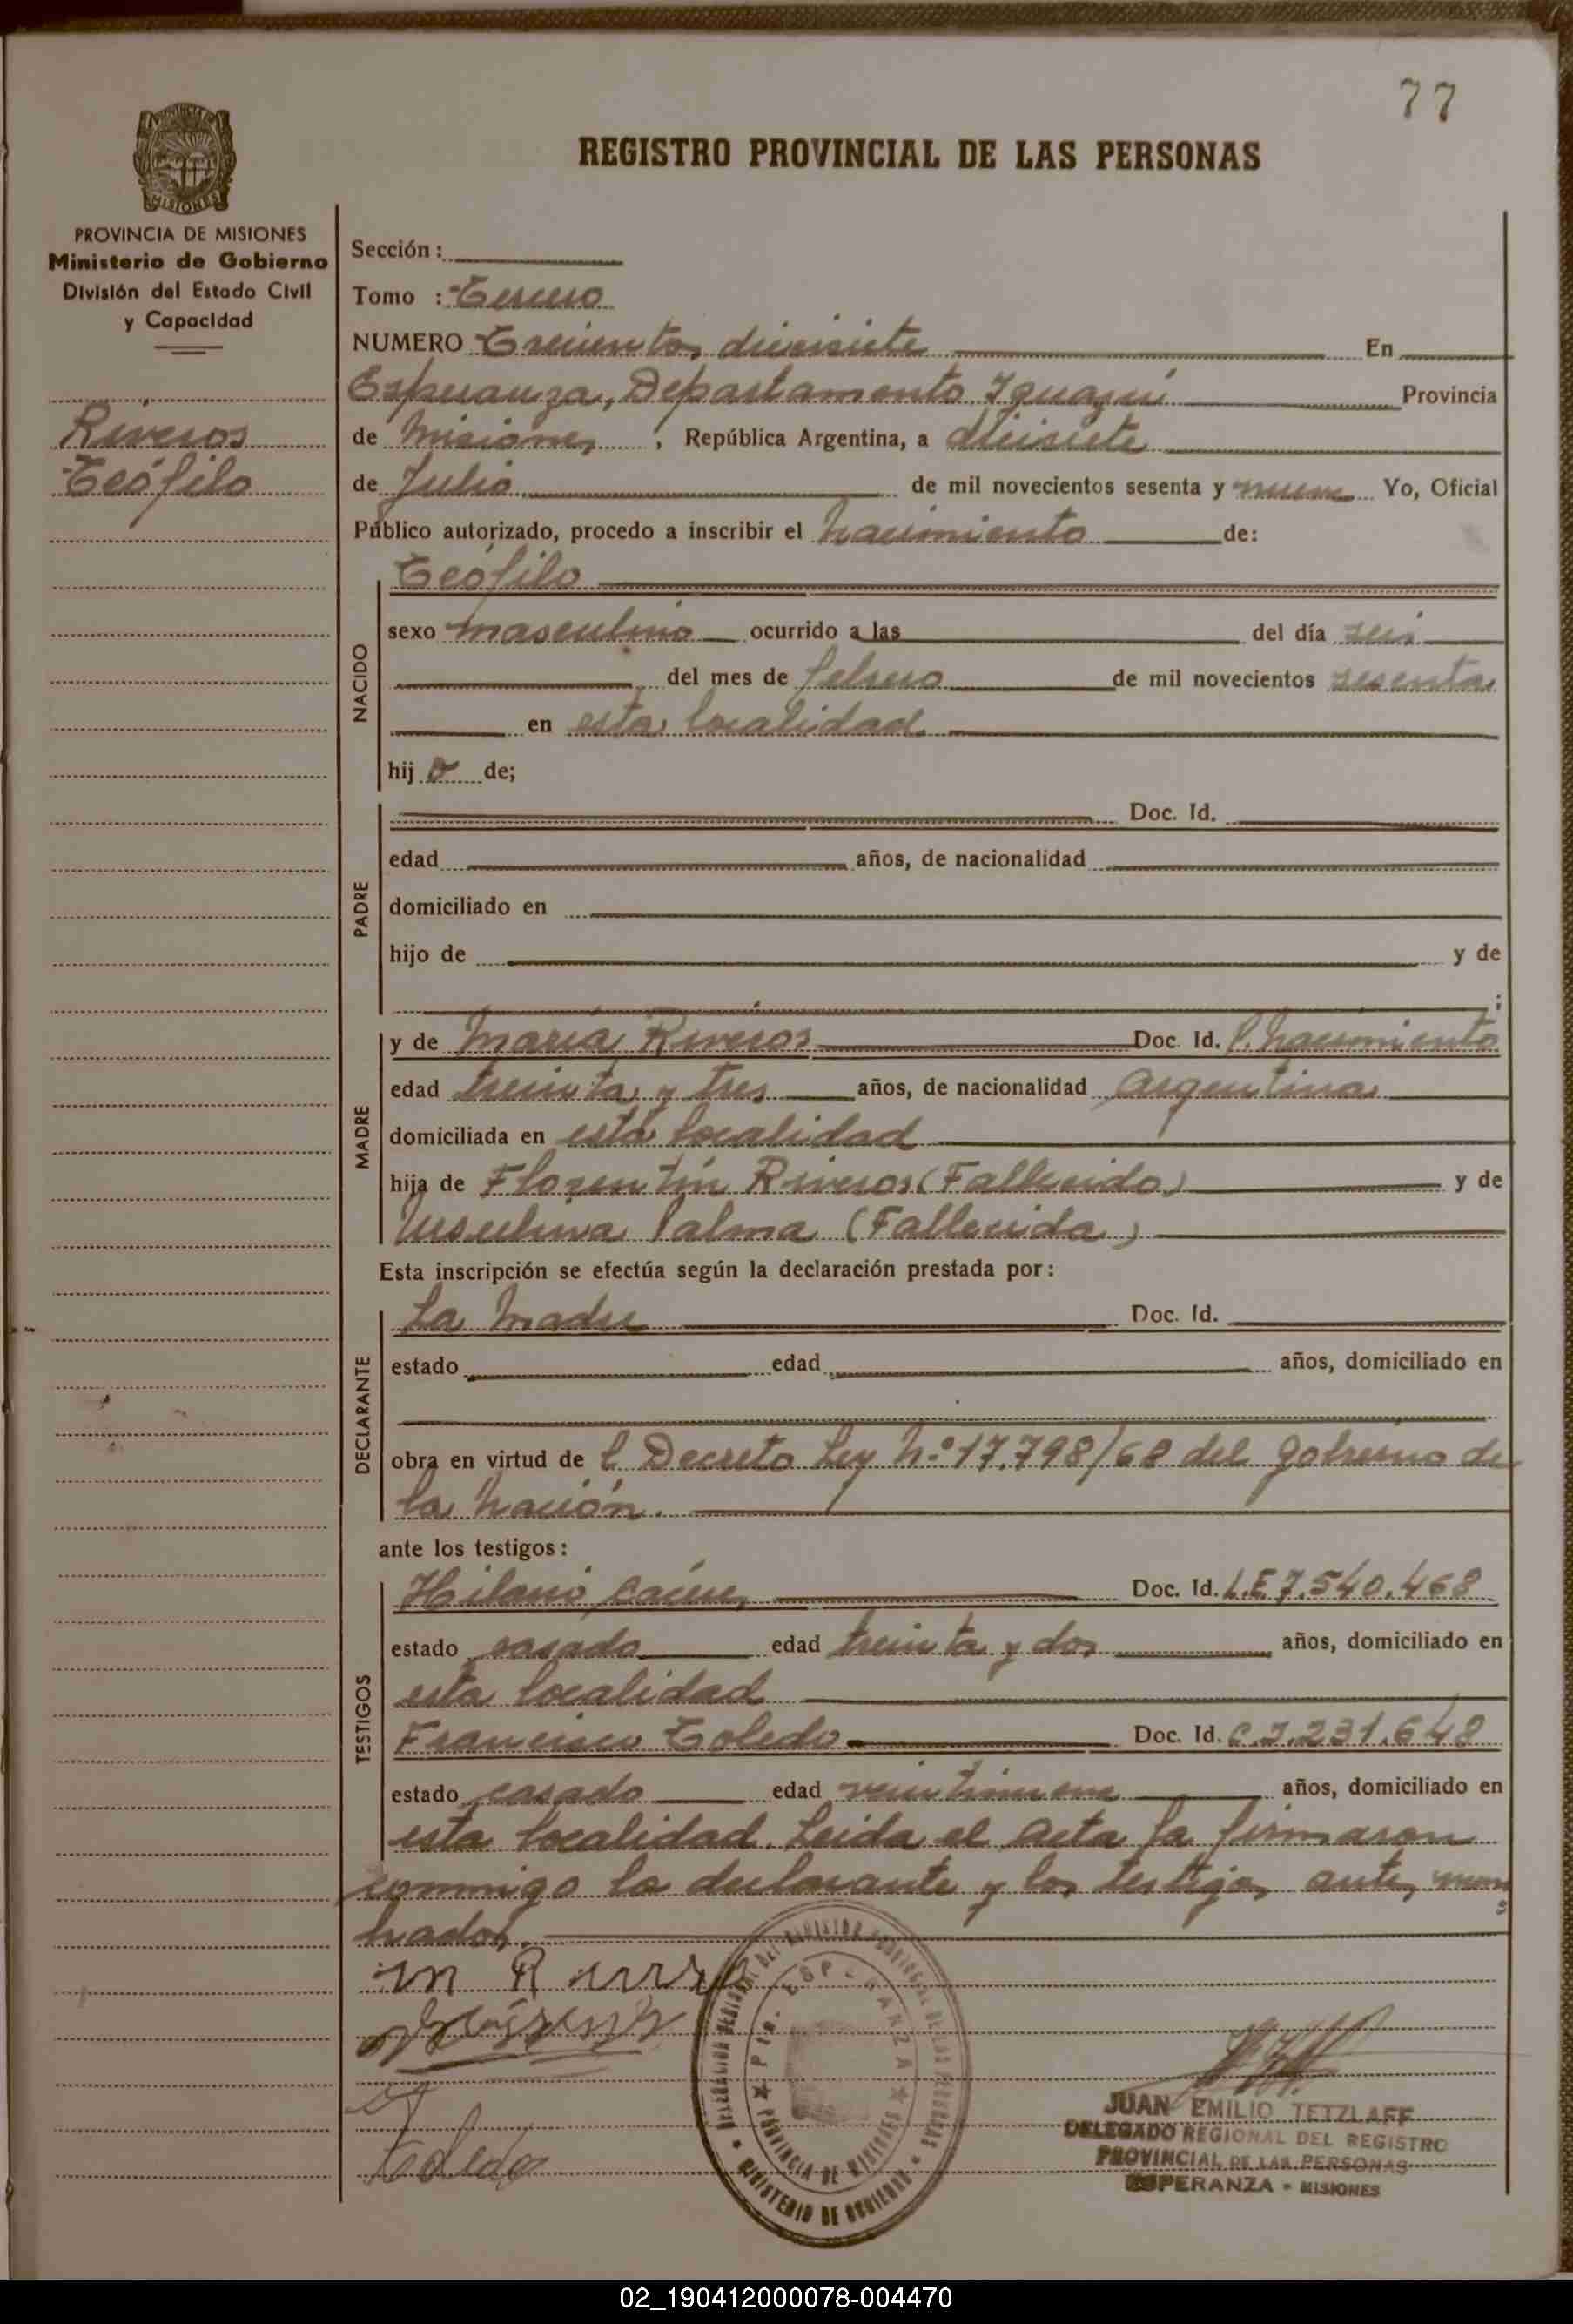 77
REGISTRO PROVINCIAL DE LAS PERSONAS
MISIONES
PROVINCIA DE MISIONES
Ministerio de Gobierno
División del Estado Civil
y Capacidad
Riveros
Teófilo
Sección :
Tomo : Tercero
NUMERO Trecientos diecisiete En
Esperanza, Departamento Iguazú Provincia
de Misiones , República Argentina, a diecisiete
de Julio de mil novecientos sesenta y nueve Yo, Oficial
Público autorizado, procedo a inscribir el Nacimiento de:
NACIDO
Teófilo
sexo masculino ocurrido a las del día seis
del mes de febrero de mil novecientos sesenta
en esta localidad
hij o de;
PADRE
Doc. Id.
edad años, de nacionalidad
domiciliado en
hijo de y de
:
MADRE
y de María Riveros Doc. Id. P. Nacimiento
edad treinta y tres años, de nacionalidad Argentina
domiciliada en esta localidad
hija de Florentín Riveros (Fallecido) y de
Palma (Fallecida)
Esta inscripción se efectúa según la declaración prestada por:
DECLARANTE
La Madre Doc. Id.
estado edad años, domiciliado en
obra en virtud de l Decreto Ley Nº 17.798/68 del Gobierno de
la Nación.
ante los testigos:
TESTIGOS
Hilario Doc. Id. L.E 7.540.468
estado casado edad treinta y dos años, domiciliado en
esta localidad
Francisco Toledo Doc. Id. C.I.231.648
estado casado edad veintinueve años, domiciliado en
esta localidad. Leida el acta la firmaron
conmigo la declarante y los testigos antes nom
brados.
Toledo
DELEGACION REGIONAL DEL REGISTRO PROVINCIAL DE LAS PERSONAS
Pto. ESPERANZA
PROVINCIA DE MISIONES
MINISTERIO DE GOBIERNO
JUAN EMILIO TETZLAFF
DELEGADO REGIONAL DEL REGISTRO
PROVINCIAL DE LAS PERSONAS
ESPERANZA - MISIONES
02_190412000078-004470